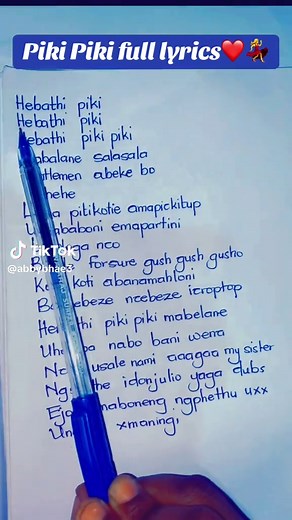 Piki Piki full lyrics❤️💃
Hebathi piki
Hebathi piki
Hebathi piki piki
balane salasala
Hemen abeke bo
hehe
pitikotie amapickitup
baboni emapartini
nco
forsure gush gush gusho
koti abanamahloni
bebeze ncebeze icroptop
piki piki mabelane
nabo bani werra
usale nami aaagaa my sister
idonjulio yaga dubs
maboneng ngphethu uxx
xmaningi
TikTok
@abbybhae3